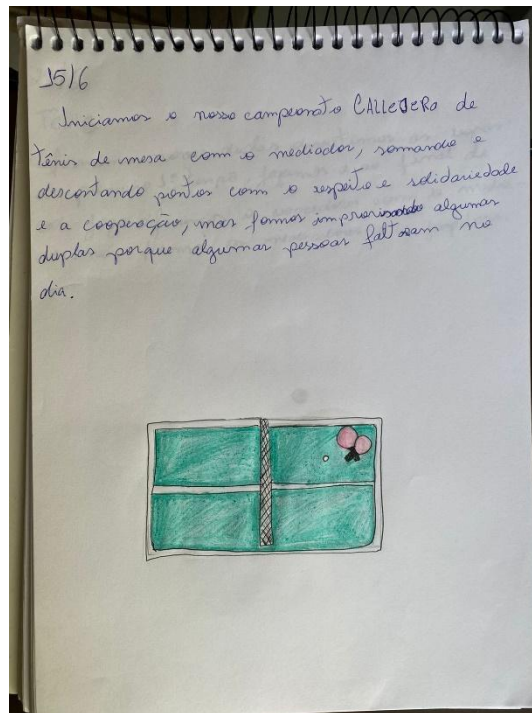 15/6
Iniciamos o nosso campeonato CALLEJERO de
tênis de mesa com o mediador, somando e
descontando pontos com o respeito e solidariedade
e a cooperação, mas fomos improvisando algumas
duplas porque algumas pessoas faltaram no
dia.